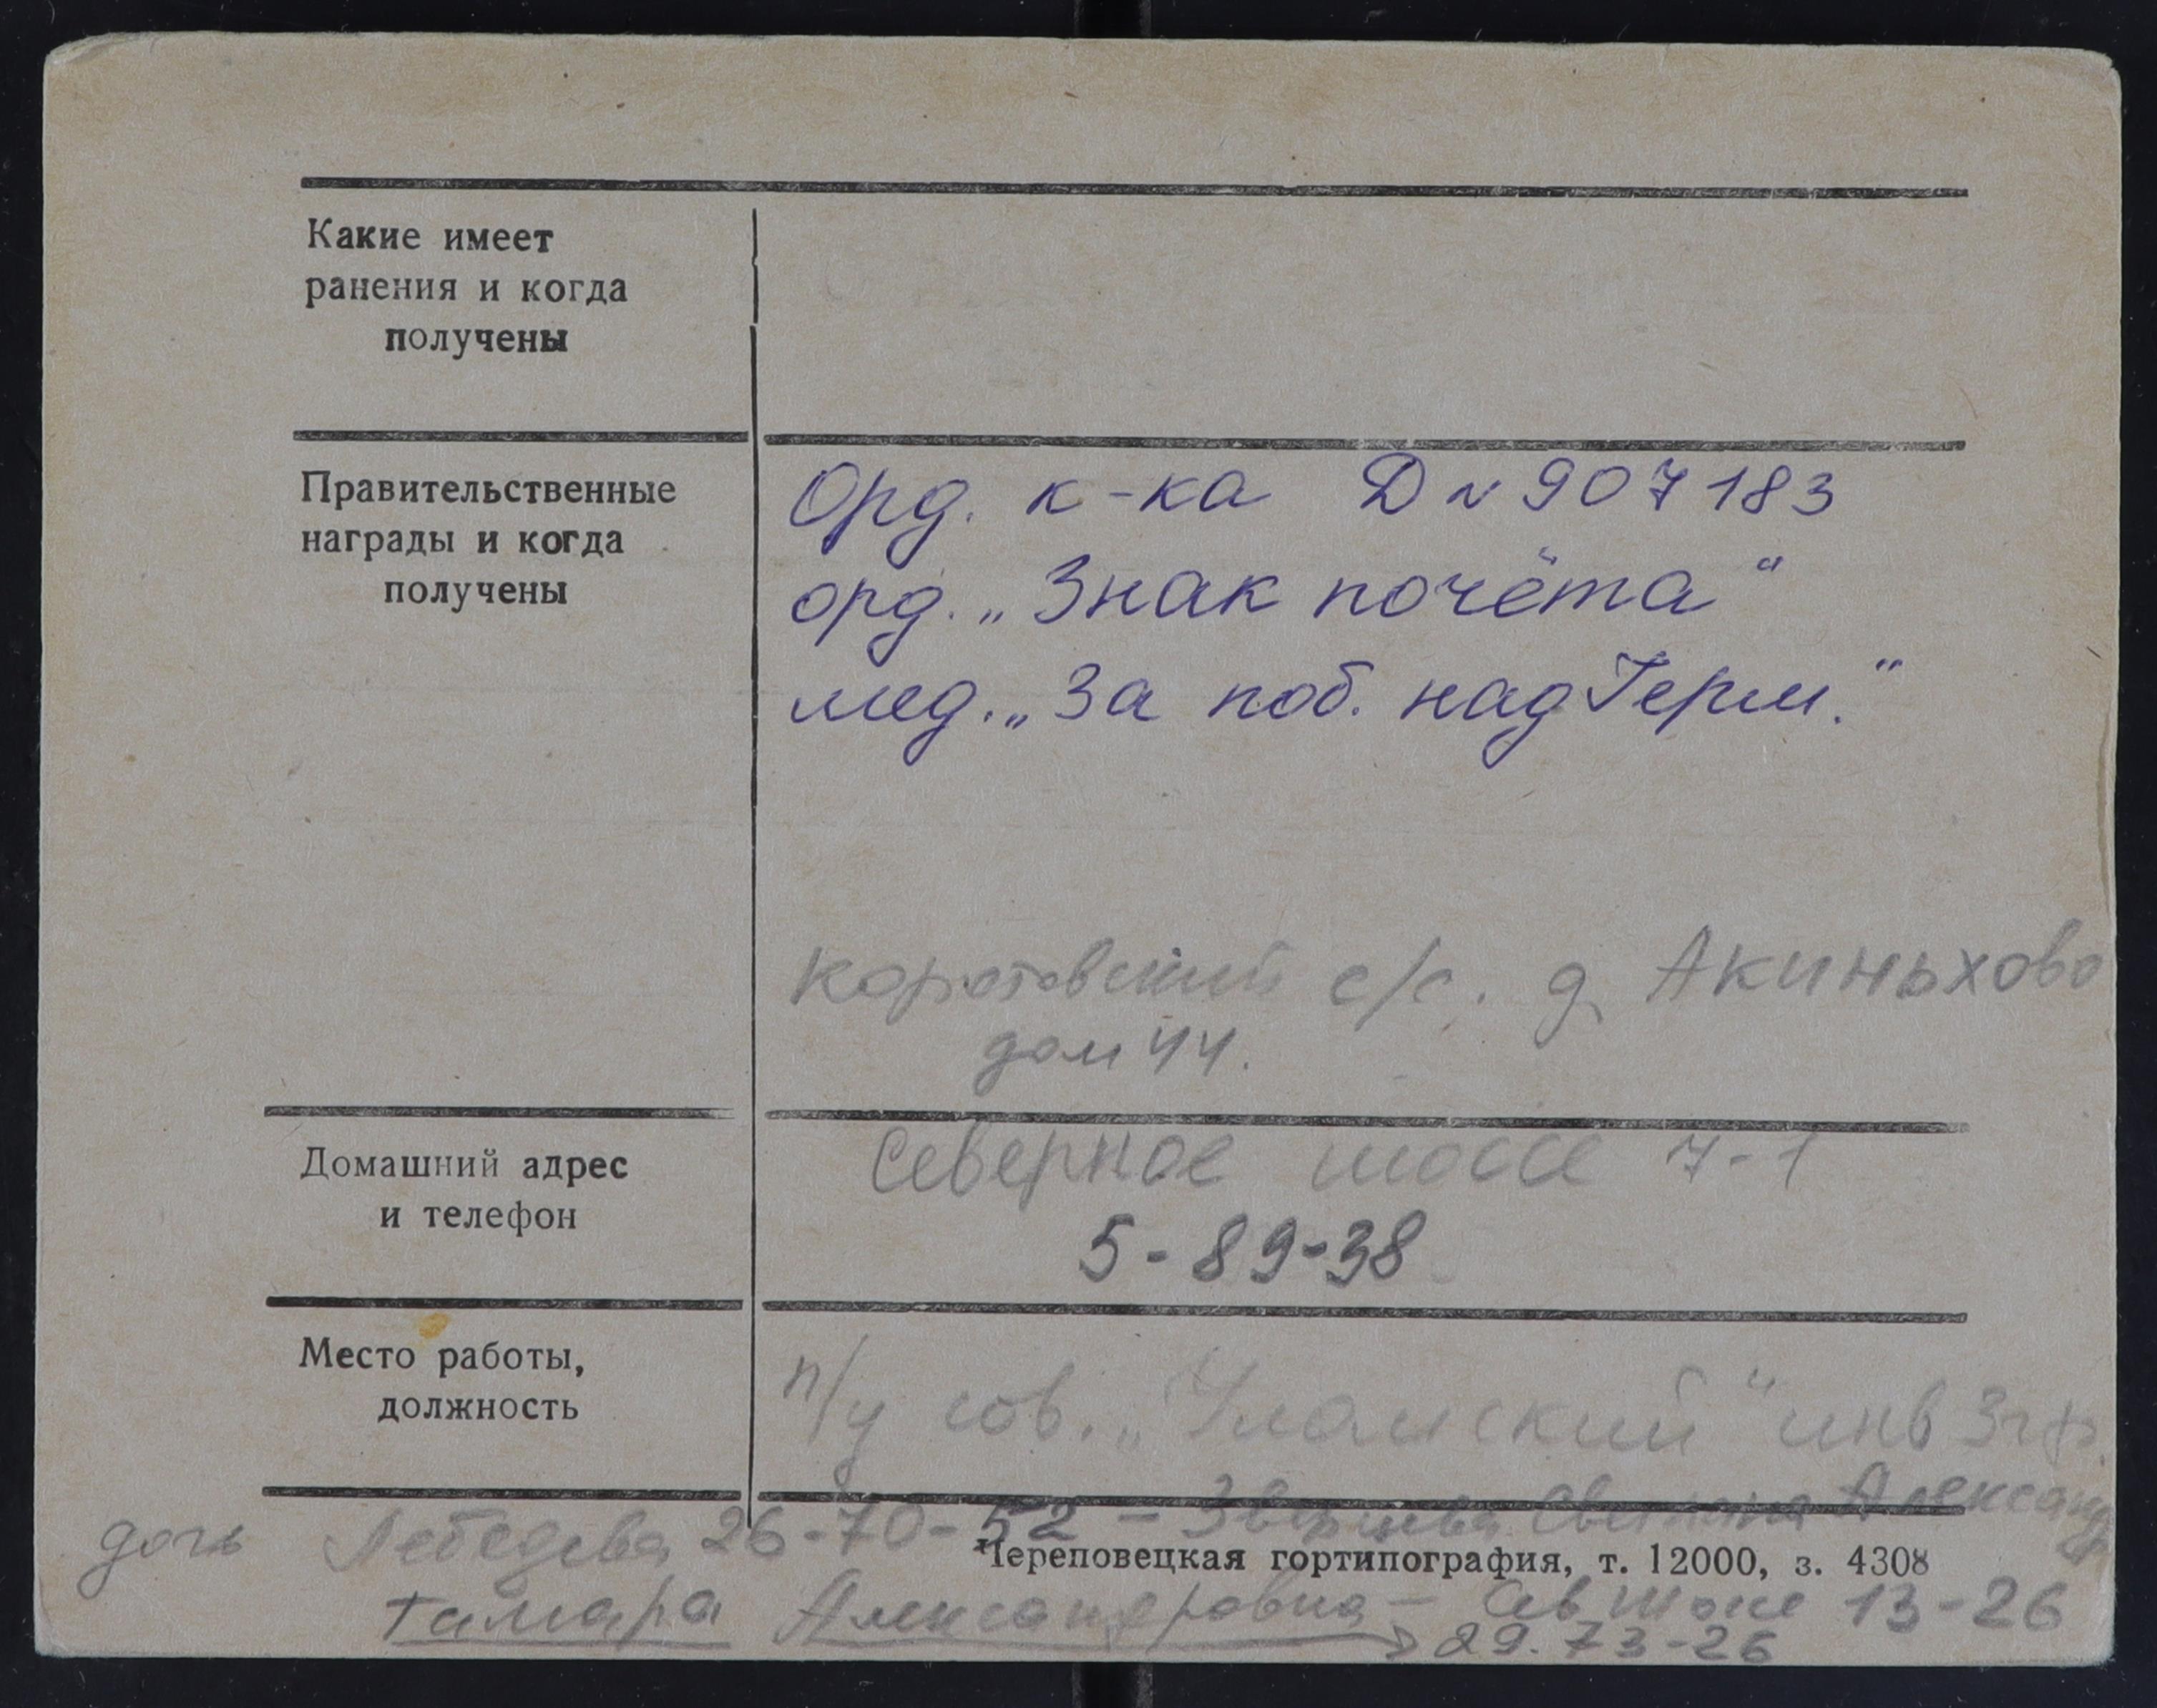 Какие имеет
ранения и когда
получены
Правительственные
награды и когда
получены
Орд. к-ка Д № 907183
орд. „Знак почёта“
мед. „За поб. над Герм.“
Коротовский с/с. д. Акиньхово
дом 44.
Домашний адрес
и телефон
Северное шоссе 7-1
5-89-38
Место работы,
должность
п/у сов. „Уломский“ инв 3 гр.
дочь Лебедева 26-70-52 - Светлана Александ
Череповецкая гортипография, т. 12000, з. 4308
Тамара Александровна - Сев шоссе 13-26
29-73-26